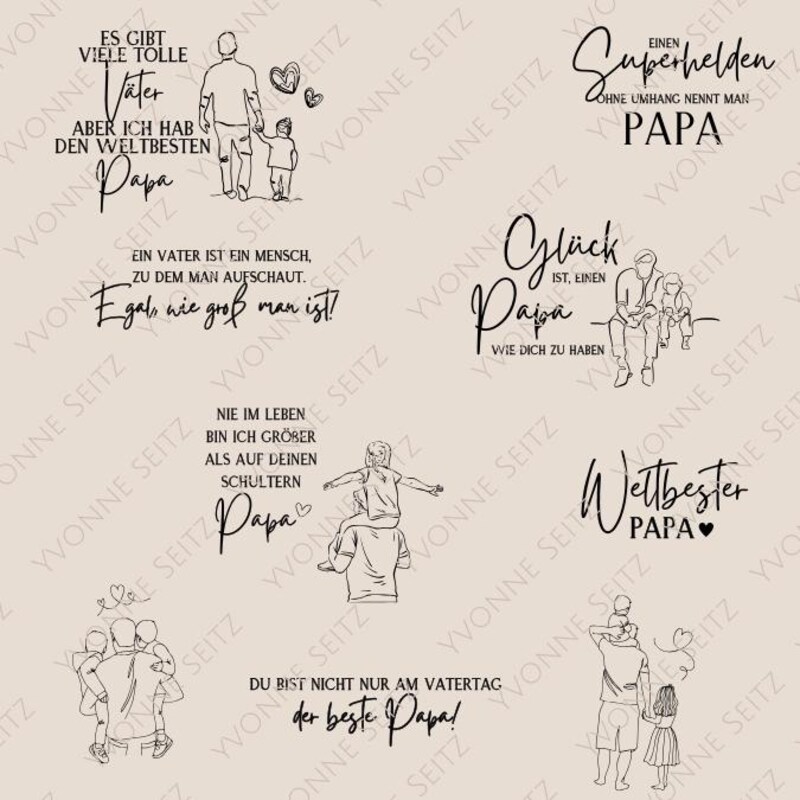 ES GIBT
VIELE TOLLE
Väter
ABER ICH HAB
DEN WELTBESTEN
Papa
EINEN
Superhelden
OHNE UMHANG NENNT MAN
PAPA
EIN VATER IST EIN MENSCH,
ZU DEM MAN AUFSCHAUT.
Egal, wie groß man ist!
Glück
IST, EINEN
Papa
WIE DICH ZU HABEN
NIE IM LEBEN
BIN ICH GRÖßER
ALS AUF DEINEN
SCHULTERN
Papa
Weltbester
PAPA
DU BIST NICHT NUR AM VATERTAG
der beste Papa!
YVONNE SEITZ